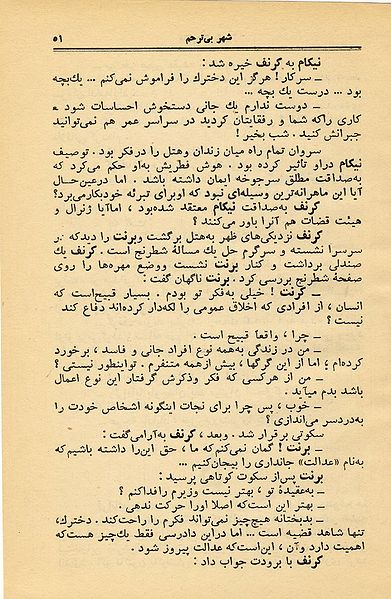 شهر بی‌ترحم
۵۱
نیکام به گرنف خیره شد :
ــ سرکار ! هرگز این دخترك را فراموش نمی‌کنم ... یك‌بچه
بود ... درست یك بچه ...
ــ دوست ندارم یك جانی دستخوش احساسات شود ،
کاری راکه شما و رفقایتان کردید در سراسر عمر هم نمی‌توانید
جبرانش کنید . شب بخیر !
سروان تمام راه میان زندان وهتل را درفکر بود . توصیف
نیکام دراو تأثیر کرده بود . هوش فطریش به‌او حکم می‌کرد که
به‌صداقت مطلق سرجوخه ایمان داشته باشد . اما درعین‌حـال
آیا این ماهرانه‌ترین وسیله‌ای نبود که اوبرای تبرئه خودبکارمی‌برد؟
گرنف به‌صداقت نیکام معتقد شده‌بود ، اماآیا ژنرال و
هیئت قضات هم آنرا باور می‌کنند ؟
گرنف نزدیکی‌های ظهر به‌هتل برگشت وبرنت را دیدکه در
سرسرا نشسته و سرگرم حل یك مسألهٔ شطرنج است . گرنف یك
صندلی برداشت و کنار برنت نشست ووضع مهره‌ها را روی
صفحهٔ شطرنج بررسی کرد . برنت ناگهان گفت :
ــ گرنت ! خیلی به‌فکر تو بودم . بسیار قبیح‌است که
انسان ، از افرادی که اخلاق عمومی را لکه‌دار کرده‌اند دفاع کند
نیست ؟
ــ چرا ، واقعاً قبیح است .
ــ من در زندگی به‌همه نوع افراد جانی و فاسد ، برخورد
کرده‌ام ؛ اما از این گرگها ، بیش ازهمه متنفرم . تواینطور نیستی ؟
ــ من از هرکسی که فکر وذکرش گرفتار این نوع اعمال
باشد بدم میآید .
ــ خوب ، پس چرا برای نجات اینگونه اشخاص خودت را
به‌دردسر می‌اندازی ؟
سکوتی برقرار شد . وبعد ، گرنف به‌آرامی‌گفت :
ــ برنت ! گمان نمی‌کنم‌که ما ، حق این‌را داشته باشیم‌که
به‌نام «عدالت» جانداری را بیجان‌کنیم ...
برنت پس‌از سکوت کوتاهی پرسید :
ــ به‌عقیدهٔ تو ، بهتر نیست وزیرم رافداکنم ؟
ــ بهتر این است‌که اصلا اورا حرکت ندهی .
ــ بدبختانه هیچ‌چیز نمی‌تواند فکرم را راحت‌کند . دخترك،
تنها شاهد قضیه است ... اما دراین دادرسی فقط یك‌چیز هست‌که
اهمیت دارد وآن ، این‌است‌که عدالت پیروز شود .
گرنف با برودت جواب داد :